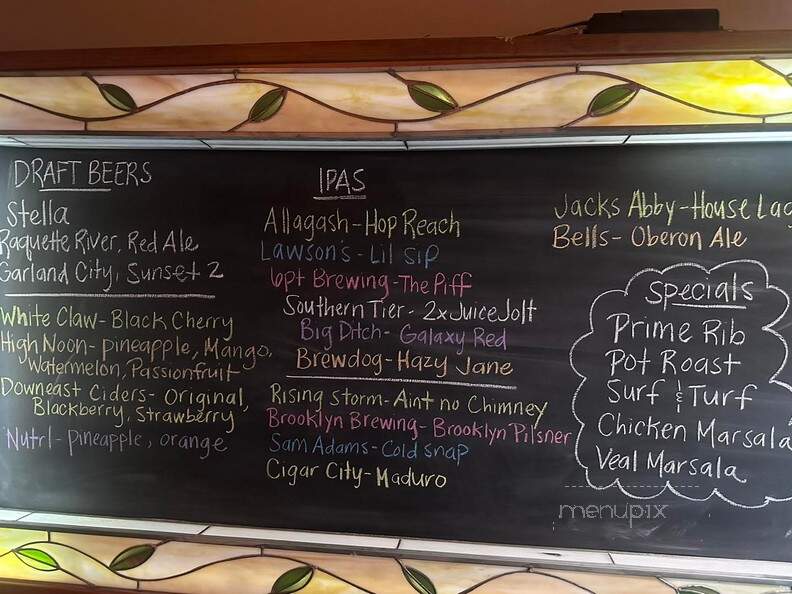 DRAFT BEERS
Stella
Raquette River, Red Ale
Garland City, Sunset 2
White Claw- Black Cherry
High Noon- pineapple, Mango,
Watermelon, Passionfruit
Downeast Ciders- Original,
Blackberry, Strawberry
Nutrl- pineapple, orange
IPAS
Allagash- Hop Reach
Lawson's- Lil Sip
6pt Brewing- The Piff
Southern Tier- 2xJuice Jolt
Big Ditch- Galaxy Red
Brewdog- Hazy Jane
Rising Storm- Aint no Chimney
Brooklyn Brewing- Brooklyn Pilsner
Sam Adams- Cold snap
Cigar City- Maduro
Jacks Abby- House Lag
Bells- Oberon Ale
Specials
Prime Rib
Pot Roast
Surf & Turf
Chicken Marsala
Veal Marsala
menupix